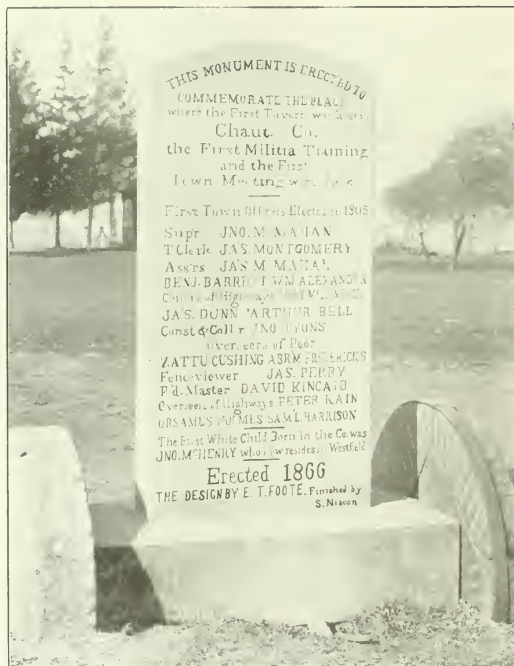 THIS MONUMENT IS ERECTED TO
COMMEMORATE THE PLACE
where the First Tavern was
Chaut. Co.
the First Militia Training
and the First
Town Meeting were
First Town Officers Elected in 1808
Sup'r JNO. M MAHAN
T Clerk JAS. MONTGOMERY
Ass'rs JA'S M MAHAN
BENJ. BARRETT WM ALEXANDER
of Highways
JA'S. DUNN ARTHUR BELL
Const & Coll'r JNO. LYONS
Overseers of Poor
ZATTU CUSHING ABR'M FREDERICKS
Fence viewer JAS. PERRY
P'd. Master DAVID KINCAID
Overseers of Highways PETER KAIN
ORSAMUS HOLMES SAM'L. HARRISON
The First White Child Born in the Co. was
JNO. McHENRY who now resides in Westfield
Erected 1866
THE DESIGN BY E. T. FOOTE. Finished by
S. Nixon